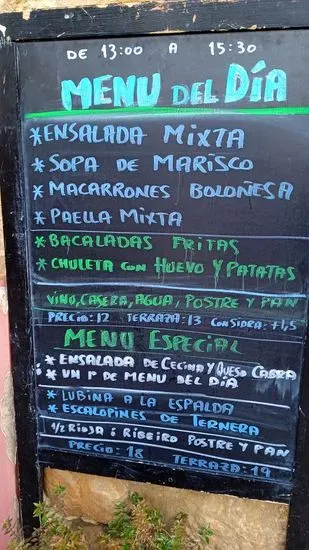 DE 13:00 A 15:30
MENU DEL DÍA
* ENSALADA MIXTA
* SOPA DE MARISCO
* MACARRONES BOLOÑESA
* PAELLA MIXTA
* BACALADAS FRITAS
* CHULETA CON HUEVO Y PATATAS
VINO, CASERA, AGUA, POSTRE Y PAN
PRECIO: 12 TERRAZA: 13 CON SIDRA: +1,5
MENU ESPECIAL
* ENSALADA DE CECINA Y QUESO CABRA
* UN 1º DE MENU DEL DÍA
* LUBINA A LA ESPALDA
* ESCALOPINES DE TERNERA
1/2 RIOJA ó RIBEIRO POSTRE Y PAN
PRECIO: 18 TERRAZA: 19